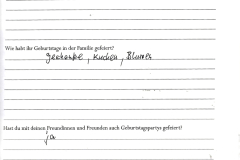 Wie habt ihr Geburtstage in der Familie gefeiert?
geschenke, Kuchen, Blumen
Hast du mit deinen Freundinnen und Freunden auch Geburtstagspartys gefeiert?
ja